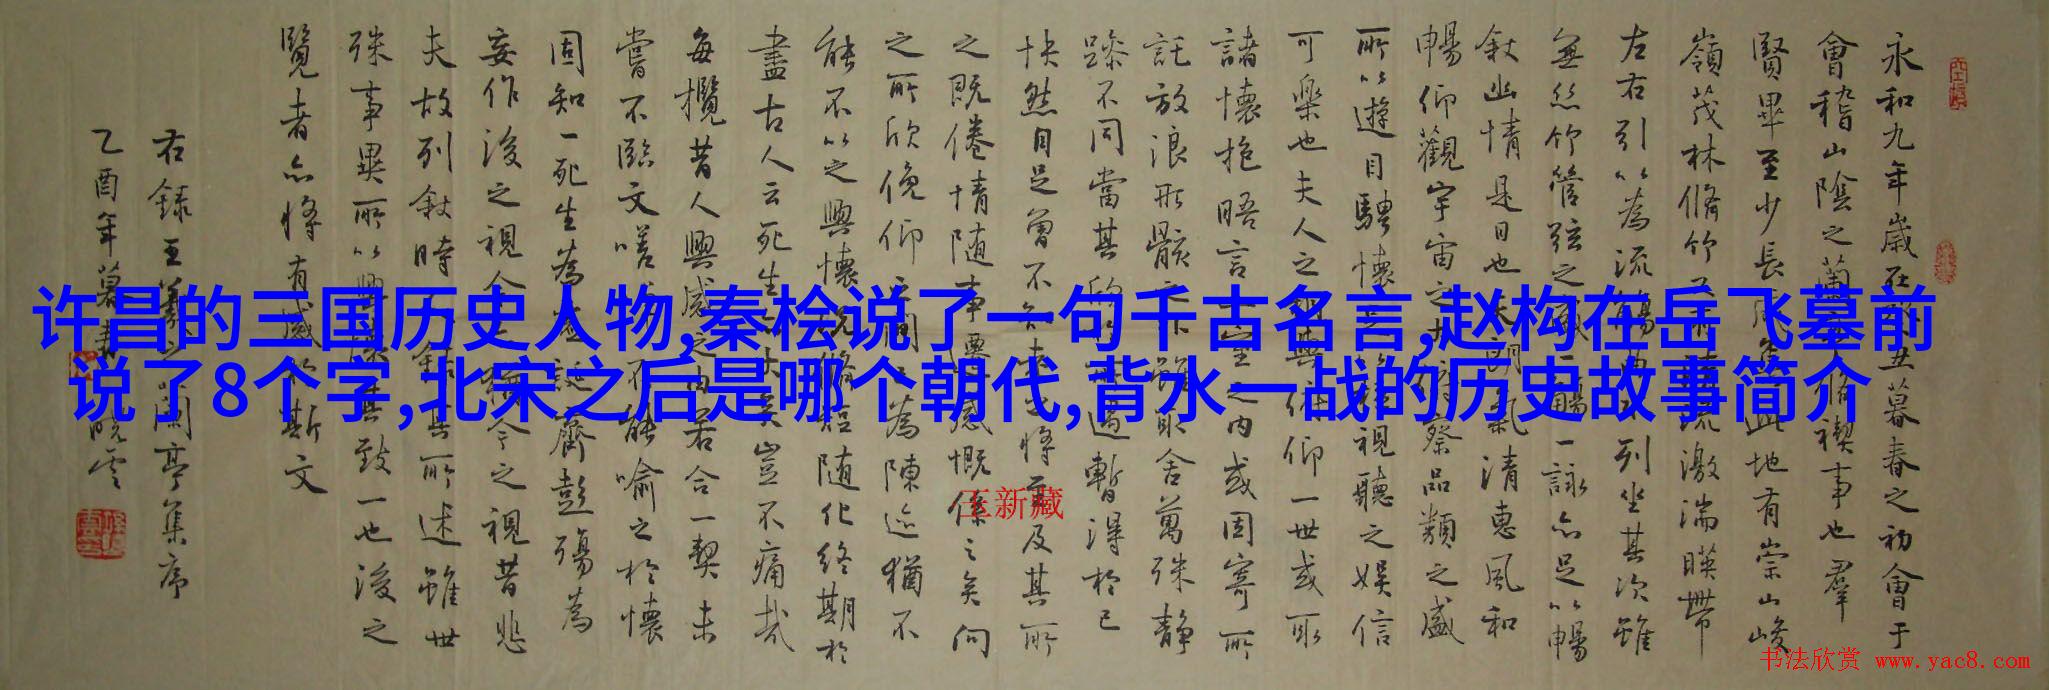 许昌的三国历史人物,秦桧说了一句千古名言,赵构在岳飞墓前
说了8个字,北宋之后是哪个朝代,背水一战的历史故事简介
永和九年歲在癸丑暮春之初會于
會稽山陰之蘭亭脩禊事也羣
賢畢至少長咸集此地有崇山峻
嶺茂林脩竹又有清流激湍暎帶
左右引以為流觴曲水列坐其次雖
無絲竹管弦之盛一觴一詠亦足以暢
敘幽情是日也天朗氣清惠風和
暢仰觀宇宙之大俯察品類之盛
所以遊目騁懷足以極視聽之娛信
可樂也夫人之相與俯仰一世或取
諸懷抱晤言一室之內或因寄所
託放浪形骸之外雖取舍萬殊靜
躁不同當其欣於所遇暫得於己
快然自足曾不知老之將至及其所
之既倦情随事遷感慨係之矣向
之所欣俛仰之間以為陳迹猶不
能不以之興懷況脩短随化終期於
盡古人云死生亦大矣豈不痛哉
每攬昔人興感之由若合一契未
嘗不臨文嗟悼不能喻之於懷
固知一死生為虛誕齊彭殤為
妄作後之視今亦猶今之視昔悲
夫故列敘時人錄其所述雖世
殊事異所以興懷其致一也後之
覽者亦將有感於斯文
右録王羲之蘭亭集序
乙酉年暮春曉雲
王新藏
书法欣赏 www.yac8.com